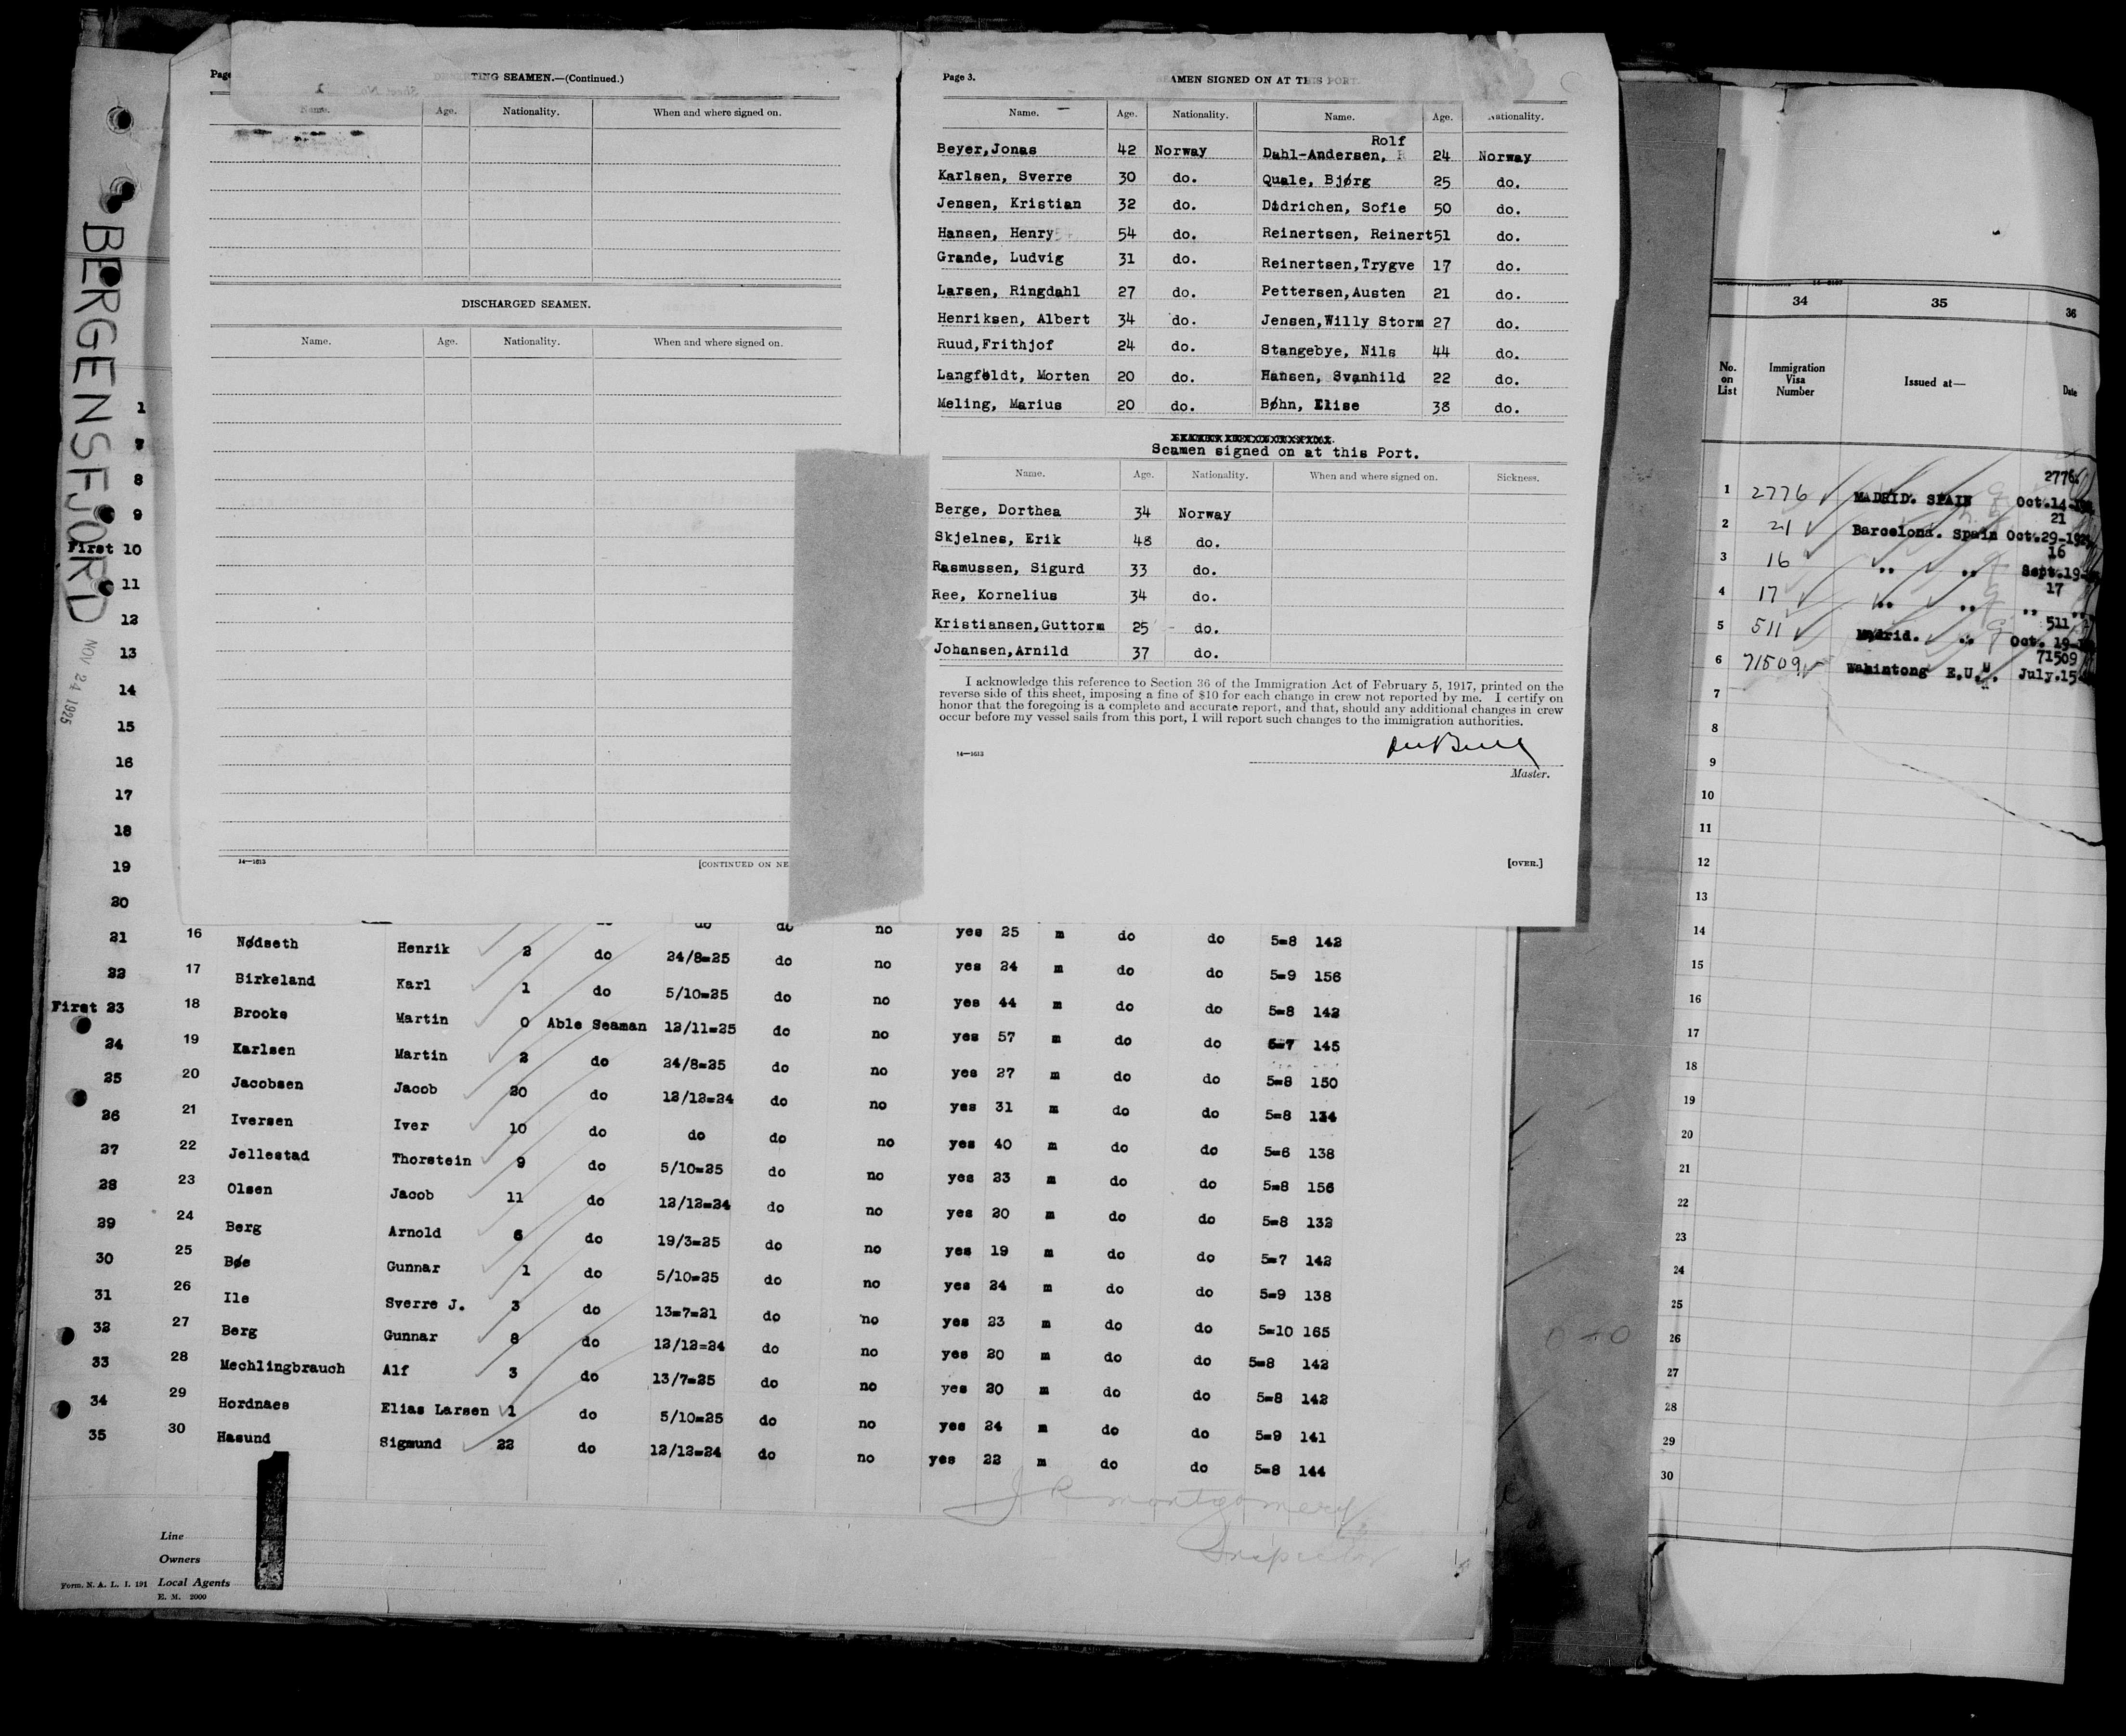 BERGENSFJORD
NOV 24 1925
Page
TING SEAMEN.—(Continued.)
Name. Age. Nationality. When and where signed on.
DISCHARGED SEAMEN.
Name. Age. Nationality. When and where signed on.
14—1613
[CONTINUED ON NE
Page 3.
SEAMEN SIGNED ON AT THIS PORT.
Name. Age. Nationality. Name. Age. Nationality.
Rolf
Beyer,Jonas 42 Norway Dahl-Andersen, 24 Norway
Karlsen, Sverre 30 do. Quale, Bjørg 25 do.
Jensen, Kristian 32 do. Didrichen, Sofie 50 do.
Hansen, Henry 54 do. Reinertsen, Reinert 51 do.
Grande, Ludvig 31 do. Reinertsen,Trygve 17 do.
Larsen, Ringdahl 27 do. Pettersen,Austen 21 do.
Henriksen, Albert 34 do. Jensen,Willy Storm 27 do.
Ruud,Frithjof 24 do. Stangebye, Nils 44 do.
Langfeldt, Morten 20 do. Hansen, Svanhild 22 do.
Meling, Marius 20 do. Bøhn, Elise 38 do.
Seamen signed on at this Port.
Name. Age. Nationality. When and where signed on. Sickness.
Berge, Dorthea 34 Norway
Skjelnes, Erik 48 do.
Rasmussen, Sigurd 33 do.
Ree, Kornelius 34 do.
Kristiansen,Guttorm 25 do.
Johansen,Arnild 37 do.
I acknowledge this reference to Section 36 of the Immigration Act of February 5, 1917, printed on the
reverse side of this sheet, imposing a fine of $10 for each change in crew not reported by me. I certify on
honor that the foregoing is a complete and accurate report, and that, should any additional changes in crew
occur before my vessel sails from this port, I will report such changes to the immigration authorities.
14—1613
Master.
[OVER.]
1
7
8
9
First 10
11
12
13
14
15
16
17
18
19
20
do do do no yes 25 m do do 5=8 142
21 16 Nødseth Henrik 2 do 24/8=25 do no yes 24 m do do 5=9 156
22 17 Birkeland Karl 1 do 5/10=25 do no yes 44 m do do 5=8 142
First 23 18 Brooks Martin 0 Able Seaman 12/11=25 do no yes 57 m do do 6=7 145
24 19 Karlsen Martin 2 do 24/8=25 do no yes 27 m do do 5=8 150
25 20 Jacobsen Jacob 20 do 12/12=24 do no yes 31 m do do 5=8 134
26 21 Iversen Iver 10 do do do no yes 40 m do do 5=6 138
27 22 Jellestad Thorstein 9 do 5/10=25 do no yes 23 m do do 5=8 156
28 23 Olsen Jacob 11 do 12/12=24 do no yes 20 m do do 5=8 132
29 24 Berg Arnold 6 do 19/3=25 do no yes 19 m do do 5=7 142
30 25 Bøe Gunnar 1 do 5/10=25 do no yes 24 m do do 5=9 138
31 26 Ile Sverre J. 3 do 13=7=21 do no yes 23 m do do 5=10 165
32 27 Berg Gunnar 8 do 12/12=24 do no yes 20 m do do 5=8 142
33 28 Mechlingbrauch Alf 3 do 13/7=25 do no yes 20 m do do 5=8 142
34 29 Hordnaes Elias Larsen 1 do 5/10=25 do no yes 24 m do do 5=9 141
35 30 Hasund Sigmund 22 do 12/12=24 do no yes 22 m do do 5=8 144
J R Montgomery
Inspector
Line
Owners
Form. N. A. L. I. 191 Local Agents
E. M. 2000
34 35 36
No. on List Immigration Visa Number Issued at— Date
2776
1 2776 MADRID. SPAIN Oct.14-
21
2 21 Barcelona. Spain Oct.29-1925
16
3 16 ,, ,, Sept.19-
17
4 17 ,, ,, ,, ,,
511
5 511 Madrid. ,, Oct. 19-
71509
6 71509 Wahintong E.U. July.15-
7
8
9
10
11
12
13
14
15
16
17
18
19
20
21
22
23
24
25
26
27
28
29
30